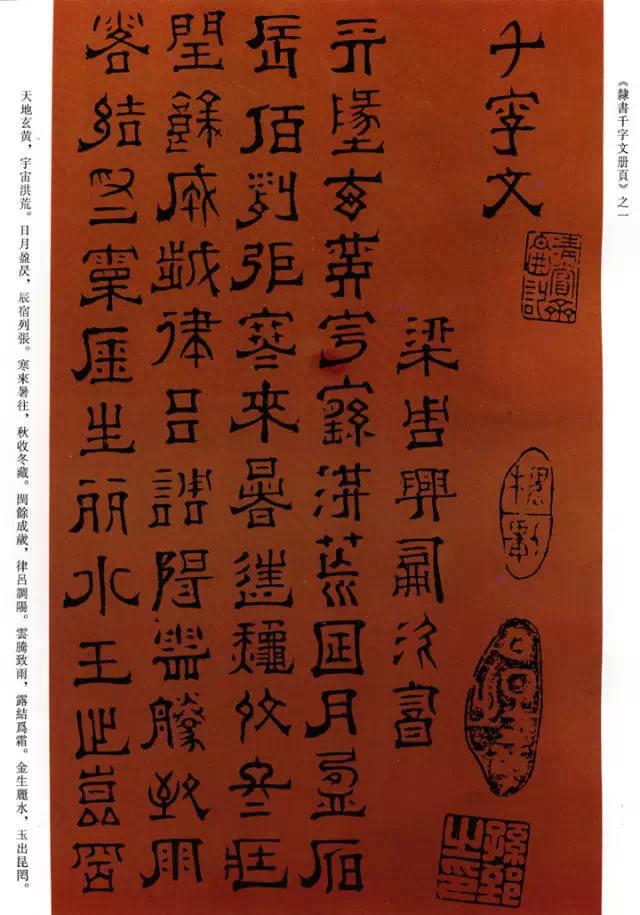 《隸書千字文册頁》之一
千字文
梁周興嗣次韻
天墬玄黃宇宙洪荒日月盈昃
辰宿列張寒來暑往秋收冬藏
閏餘成歲律呂調陽雲騰致雨
露結爲霜金生丽水玉出崑岡
天地玄黃，宇宙洪荒。日月盈昃，辰宿列張。寒來暑往，秋收冬藏。閏餘成歲，律呂調陽。雲騰致雨，露結爲霜。金生麗水，玉出昆罔。